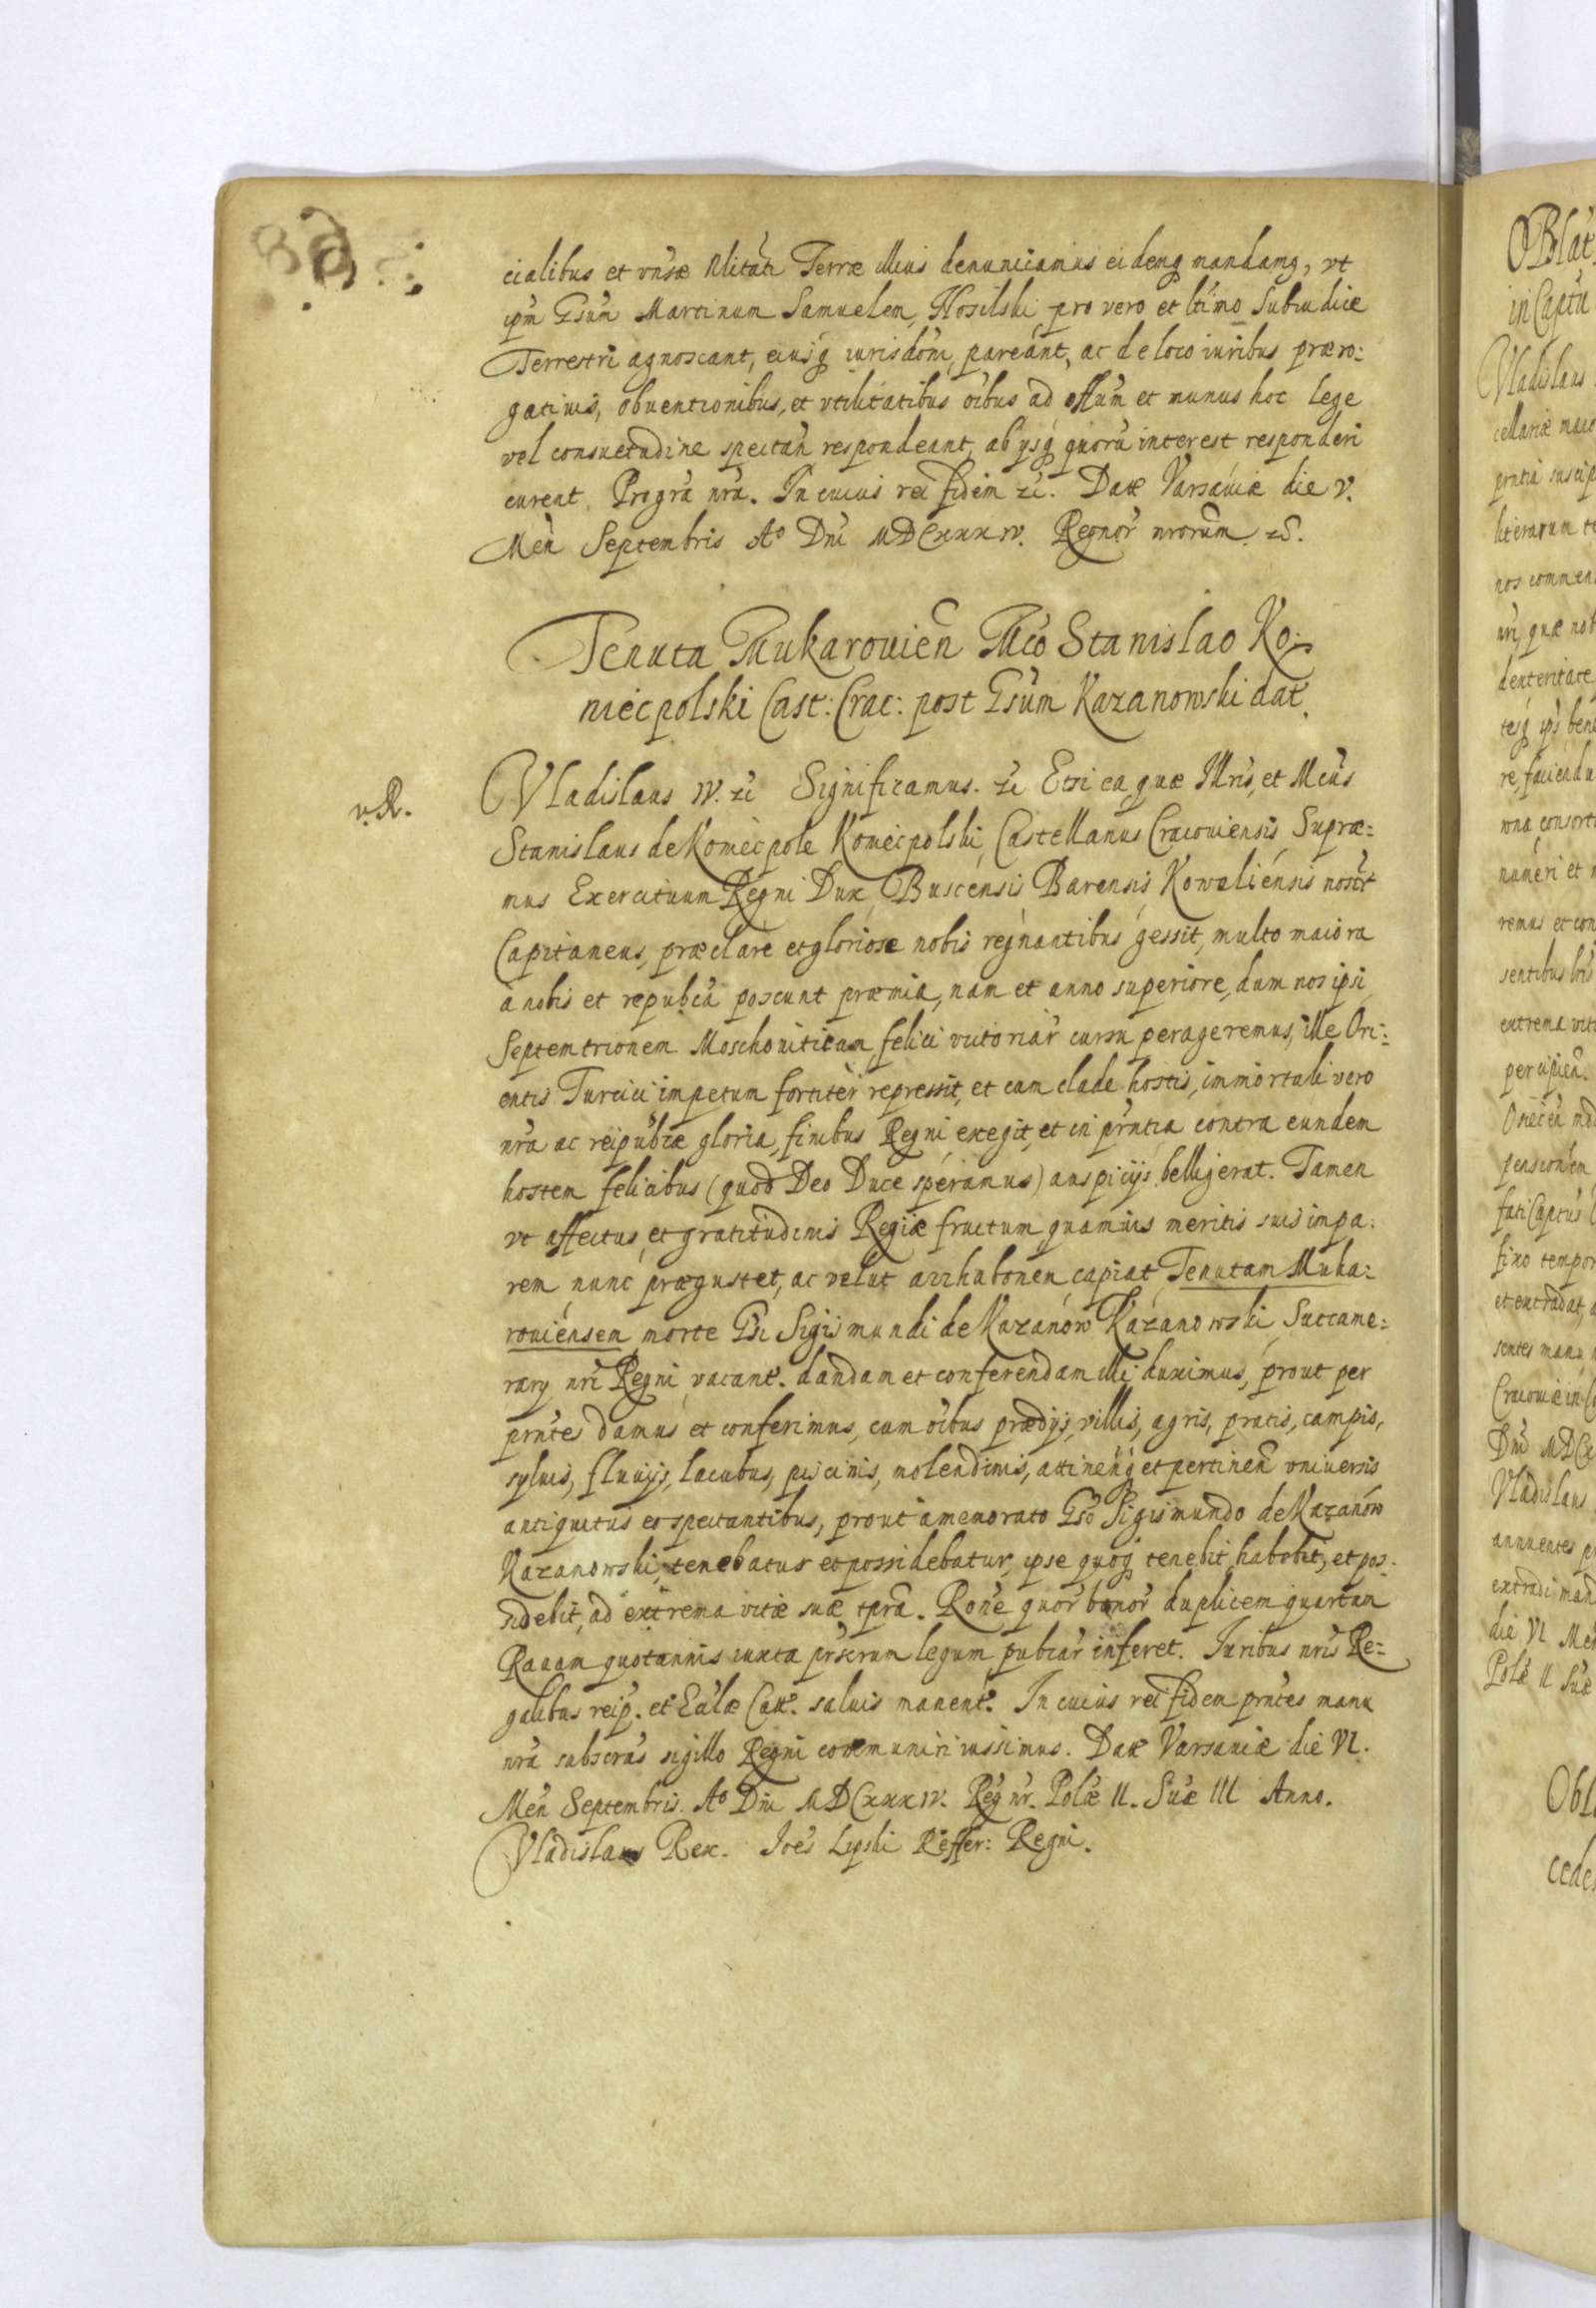 cialibus et vnsæ Nlitati Terræ illius denunciamus eidemq mandamq, vt
ipm Gsum Martinum Samuelem Hosilski pro vero et ltimo Subiudice
Terrestri agnoscant, eiusq iurisdoni pareant, ac de loco iuribus præro:
gatiuis, obuentionibus, et vtilitatibus oibus ad offum et munus hoc lege
vel consuetudine spectan respondeant, ab ysq quoru interest responderi
curent. Progra nra. In cuius rei fidem zc. Datæ Varsauiæ die V.
Men Septembris Ao Dni MDCxxxIV. Regnor nrorum zc.
Tenuta Mukarouien Mco Stanislao Ko:
niecpolski Cast: Crac: post Gsum Kazanowski dat.
v.R.
Vladislaus IV. zc Significamus. zc Etsi ea quæ Illris, et Mcus
Stanislaus de Koniecpole Koniecpolski, Castellanus Cracouiensis, Supræ:
mus Exercituum Regni Dux, Buscensis, Barensis, Kowaliensis noster
Capitaneus, præclare et gloriose nobis regnantibus gessit, multo maiora
à nobis et repubca poscunt præmia, nam et anno superiore, dum nos ipsi
Septemtrionem Moschouiticam felici victoriar cursu perageremus, ille Ori:
entis Turcici impetum fortiter repressit, et cum clade hostis, immortali vero
nra ac reipubcæ gloria, finibus Regni exegit, et in prntia contra eundem
hostem felicibus (quod Deo Duce speramus) auspicijs belligerat. Tamen
vt affectus, et gratitudinis Regiæ fructum quamuis meritis suis impa:
rem nunc prægustet, ac velut arrhabonem capiat, Tenutam Muka:
rouiensem morte Gsi Sigismundi de Kazanow Kazanowski, Succame:
rary nri Regni vacant. dandam et conferendam illi duximus, prout per
prntes damus et conferimus, cum oibus prædijs, villis, agris, pratis, campis,
syluis, fluuijs, lacubus, piscinis, molendinis, attinenq et pertinen vniuersis
antiquitus eo spectantibus, prout a memorato Gso Sigismundo de Kazanow
Kazanowski, tenebatur et possidebatur, ipse quoq tenebit, habebit, et pos:
sidebit, ad extrema vitæ suæ tpra. Rone quor bonor duplicem quartam
Rauam quotannis iuxta prscrum legum pubcar inferet. Iuribus nris Re:
galibus reip. et Eclæ Catt. saluis manent. In cuius rei fidem prntes manu
nra subscras sigillo Regni communiri iussimus. Datæ Varsauiæ die VI.
Men Septembris Ao Dni MDCxxxIV. Reg nr. Polæ II. Suæ III Anno.
Vladislaus Rex. Ioes Lipski Reffer: Regni.